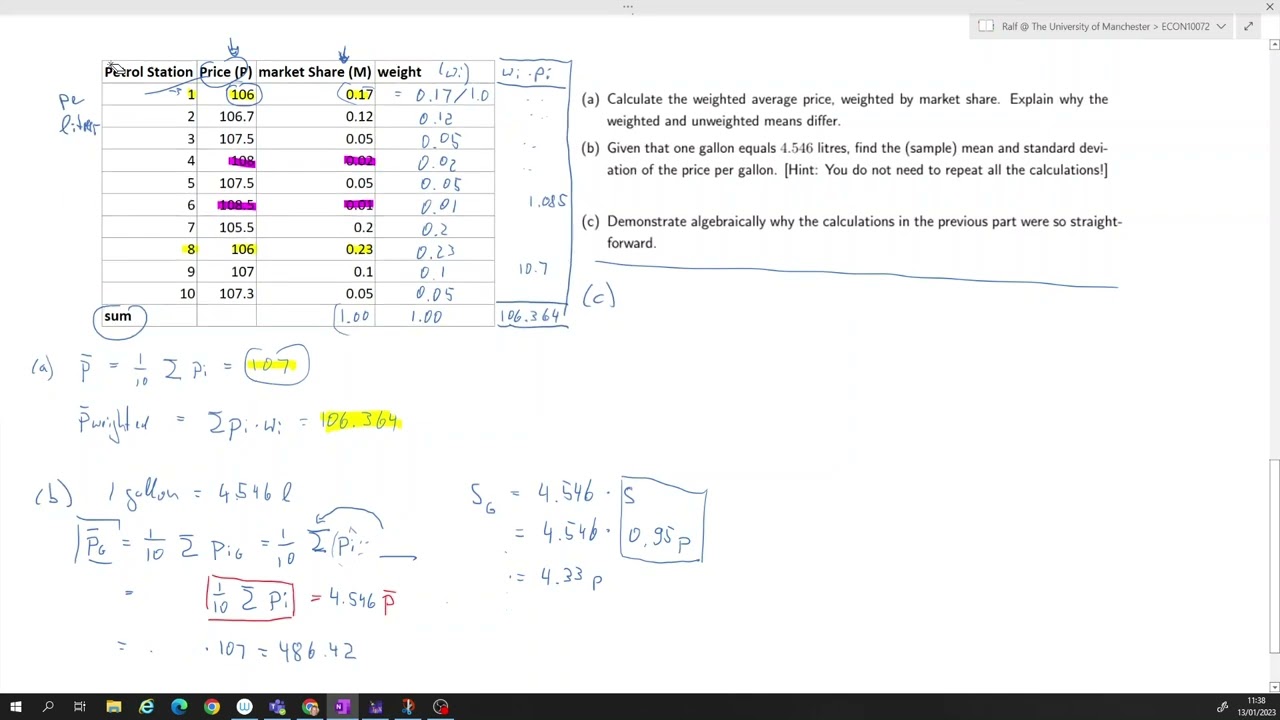 Ralf @ The University of Manchester > ECON10072
Petrol Station Price (P) market Share (M) weight (wi) wi · pi
1 106 0.17 = 0.17/1.0
per
2 106.7 0.12 0.12
litres
3 107.5 0.05 0.05
4 108 0.02 0.02
5 107.5 0.05 0.05
6 108.5 0.01 0.01 1.085
7 105.5 0.2 0.2
8 106 0.23 0.23
9 107 0.1 0.1 10.7
10 107.3 0.05 0.05
sum 1.00 1.00 106.364
(a) Calculate the weighted average price, weighted by market share. Explain why the
weighted and unweighted means differ.
(b) Given that one gallon equals 4.546 litres, find the (sample) mean and standard devi-
ation of the price per gallon. [Hint: You do not need to repeat all the calculations!]
(c) Demonstrate algebraically why the calculations in the previous part were so straight-
forward.
(c)
(a) p̄ = 1/10 Σ pi = 107
p̄ weighted = Σ pi · wi = 106.364
(b) 1 gallon = 4.546 l
p̄G = 1/10 Σ piG = 1/10 Σ (pi
= 1/10 Σ pi = 4.546 p̄
= · 107 = 486.42
SG = 4.546 · S
= 4.546 · 0.95p
= 4.33 p
11:38
13/01/2023